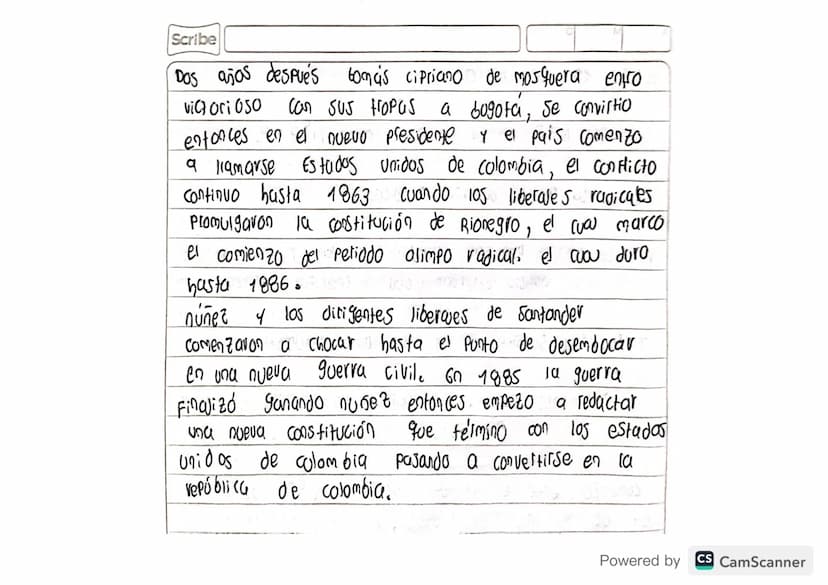 Scribe
Dos años después tomás cipriano de mosquera entro
victorioso con sus tropas a bogotá, se convirtio
entonces en el nuevo presidente y el pais comenzo
a llamarse Estados unidos de colombia, el conflicto
continuo hasta 1863 cuando los liberales radicales
Promulgaron la constitución de Rionegro, el cual marco
el comienzo del periodo olimpo radical. el cual duro
hasta 1886.
núñez y los dirigentes liberales de Santander
comenzaron a chocar hasta el punto de desembocar
en una nueva guerra civil. En 1885 la guerra
Finalizó ganando nuñez entonces empezo a redactar
una nueva constitución que término con los estados
unidos de colombia pasando a convertirse en la
república de colombia.
Powered by CS CamScanner